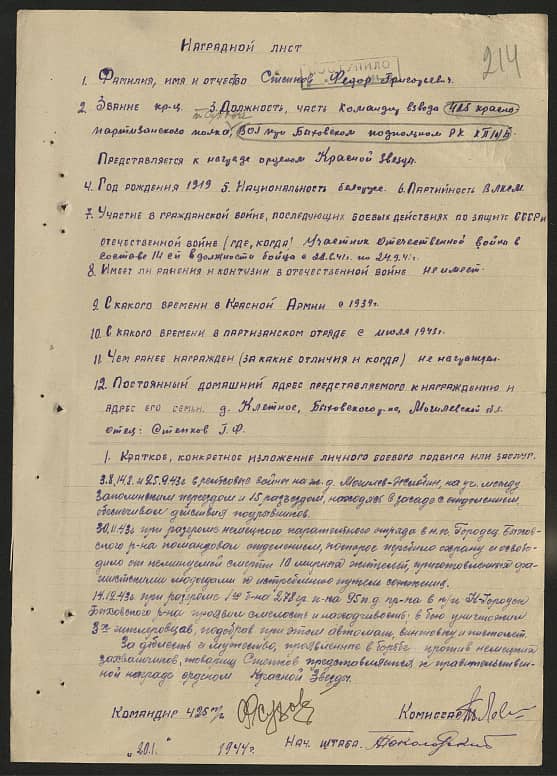 214
Наградной лист
ПОСТУПИЛО
1. Фамилия, имя и отчество Стенков Федор Григорьевич.
2. Звание кр-ц. 3. Должность, часть Командир взвода 425 красно
партизанского полка, ВОГ при Быховском подпольном РК КП(б)Б
Представляется к награде орденом Красной Звезды.
4. Год рождения 1919 5. Национальность белорус. 6. Партийность ВЛКСМ.
7. Участие в гражданской войне, последующих боевых действиях по защите СССР и
отечественной войне (где, когда) Участник отечественной войны в
составе 111 сп в должности бойца с 22.6.41г. по 24.9.41г.
8. Имеет ли ранения и контузии в отечественной войне не имеет.
9. С какого времени в Красной Армии с 1939г.
10. С какого времени в партизанском отряде с июля 1943г.
11. Чем ранее награжден (за какие отличия и когда) не награжден.
12. Постоянный домашний адрес представляемого к награждению и
адрес его семьи. д. Клетное, Быховского р-на, Могилевской обл.
отец: Стенков Г.Ф.
1. Краткое, конкретное изложение личного боевого подвига или заслуг.
3.8, 14.8. и 25.9.43г в рельсовые войны на ж.д. Могилев-Жлобин, на уч. между
переездом и 15 разъездом, находясь в засаде с отделением
обеспечивал действия подрывников.
30.11.43г при разгроме немецкого карательного отряда в н.п. Городец Быхов-
ского р-на командовал отделением, которое перебило охрану и освобо-
дило от неминуемой смерти 10 мирных жителей, приготовленных фа-
шистскими людоедами к истреблению путем сожжения.
14.12.43г при разгроме 1го б-на 278гр п-ка 95п.д. пр-ка в н/п Н-Городец
Быховского р-на проявил смелость и находчивость: в бою уничтожил
3х гитлеровцев, подобрав при этом автомат, винтовку и пистолет.
За доблесть и мужество, проявленные в борьбе против немецких
захватчиков, товарищ Стенков представляется к правительствен-
ной награде орденом Красной Звезды.
Командир 425 п/п Комиссар
"20.1. 1944г. Нач. штаба.